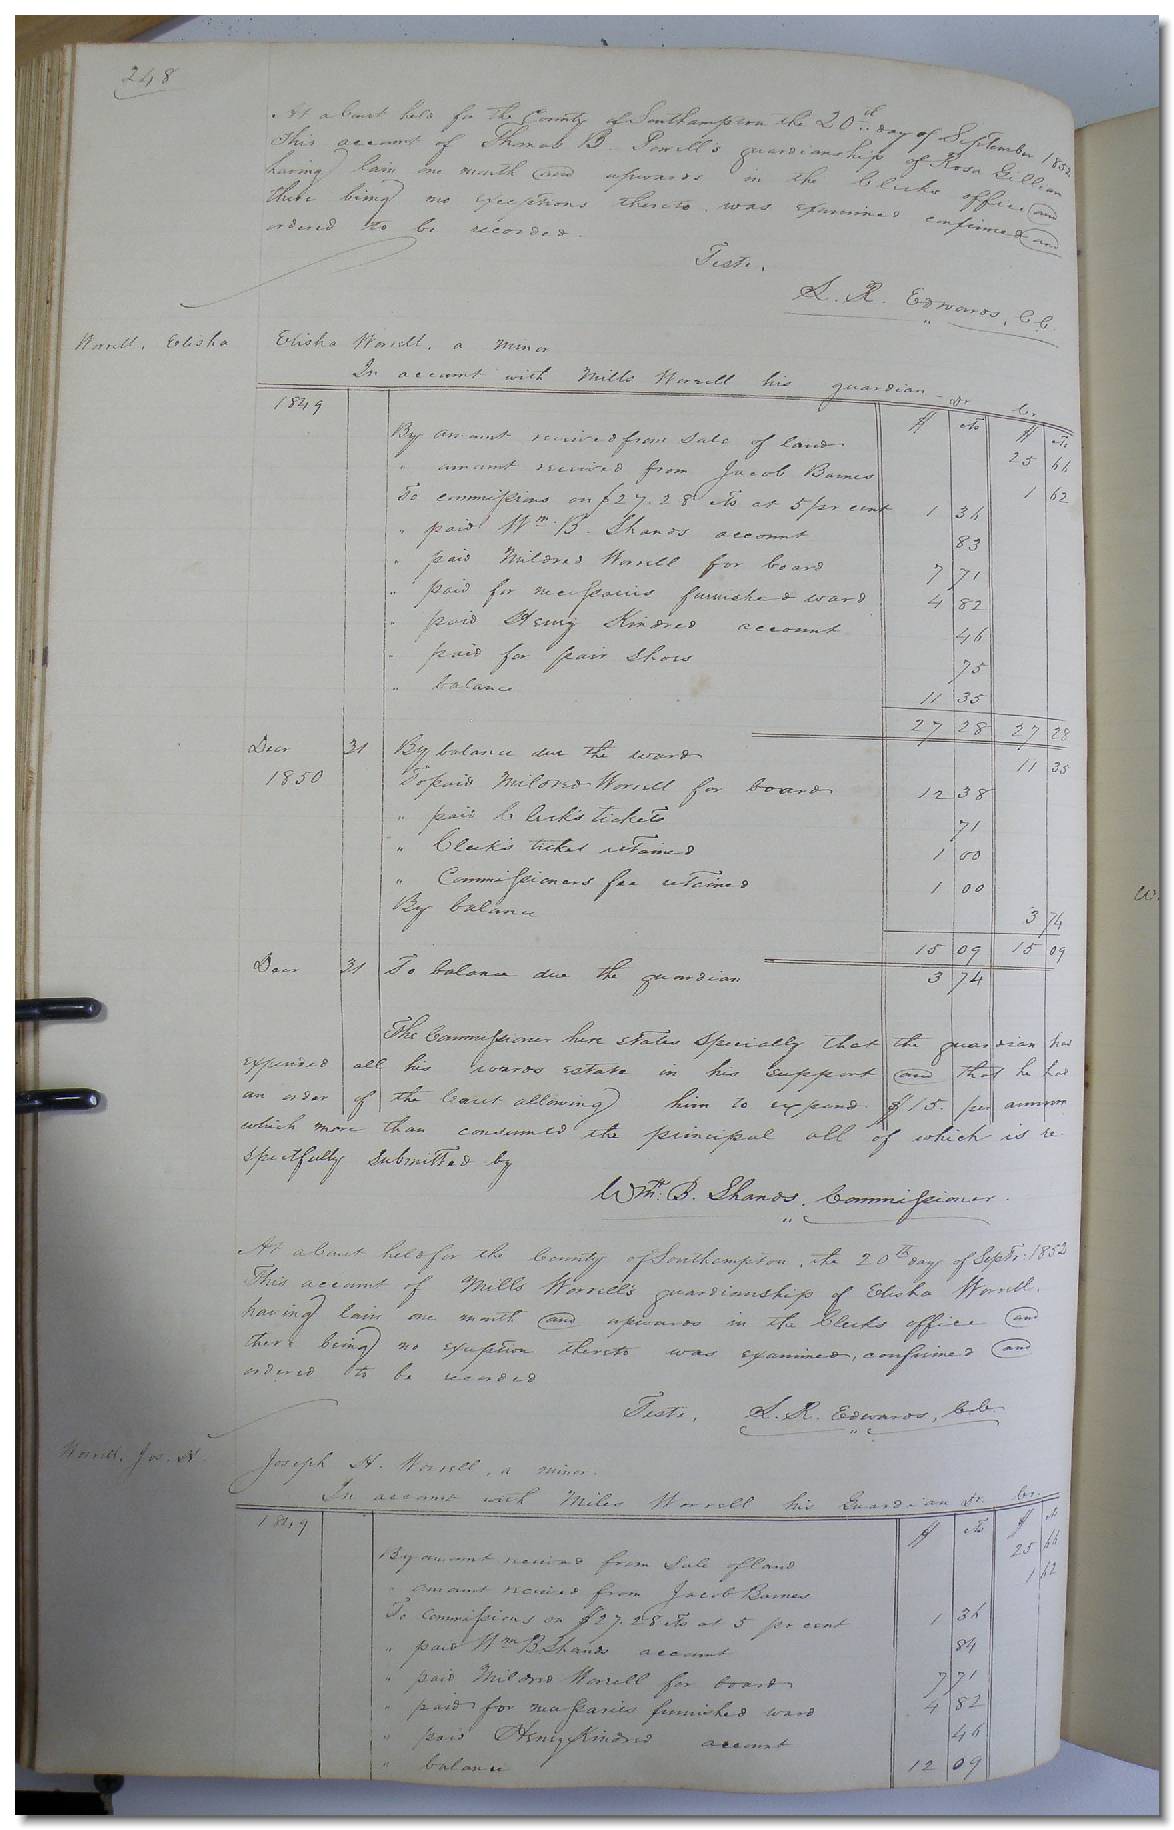 248
At a Court held for the County of Southampton the 20th day of September 1852
This account of Thomas B. Powell's guardianship of Rosa Gillian
having lain one month and upwards in the Clerks office and
there being no exceptions thereto was examined confirmed and
ordered to be recorded.
Teste,
L. R. Edwards, C.C.
Worrell, Elisha
Elisha Worrell, a minor
In account with Mills Worrell his guardian Dr. Cr.
1849 $ cts $ cts
By amount received from sale of land 25 66
" amount received from Jacob Barnes 1 62
To commissions on $27.28 cts at 5 pr cent 1 36
" paid Wm. B. Shands account 83
" paid Mildred Worrell for board 7 71
" paid for necessaries furnished ward 4 82
" paid Henry Kindred account 46
" paid for pair shoes 75
" balance 11 35
27 28 27 28
Decr 31 By balance due the ward 11 35
1850 To paid Mildred Worrell for board 12 38
" paid Clerk's tickets 71
" Clerk's ticket retained 1 00
" Commissioners fee retained 1 00
By balance 3 74
15 09 15 09
Decr 31 To balance due the guardian 3 74
The Commissioner here states specially that the guardian has
expended all his wards estate in his support and that he had
an order of the Court allowing him to expend $15. per annum
which more than consumed the principal all of which is re-
spectfully submitted by
Wm. B. Shands, Commissioner.
At a Court held for the County of Southampton, the 20th day of Septr. 1852
This account of Mills Worrell's guardianship of Elisha Worrell,
having lain one month and upwards in the Clerks office and
there being no exception thereto was examined, confirmed and
ordered to be recorded
Teste, L. R. Edwards, C.C.
Worrell, Jos. H.
Joseph H. Worrell, a minor.
In account with Miles Worrell his Guardian Dr. Cr.
1849 $ cts $ cts
By amount received from sale of land 25 66
" amount received from Jacob Barnes 1 62
To Commissions on $27.28 cts at 5 pr cent 1 36
" paid Wm B. Shands account 84
" paid Mildred Worrell for board 7 71
" paid for necessaries furnished ward 4 82
" paid Henry Kindred account 46
" balance 12 09